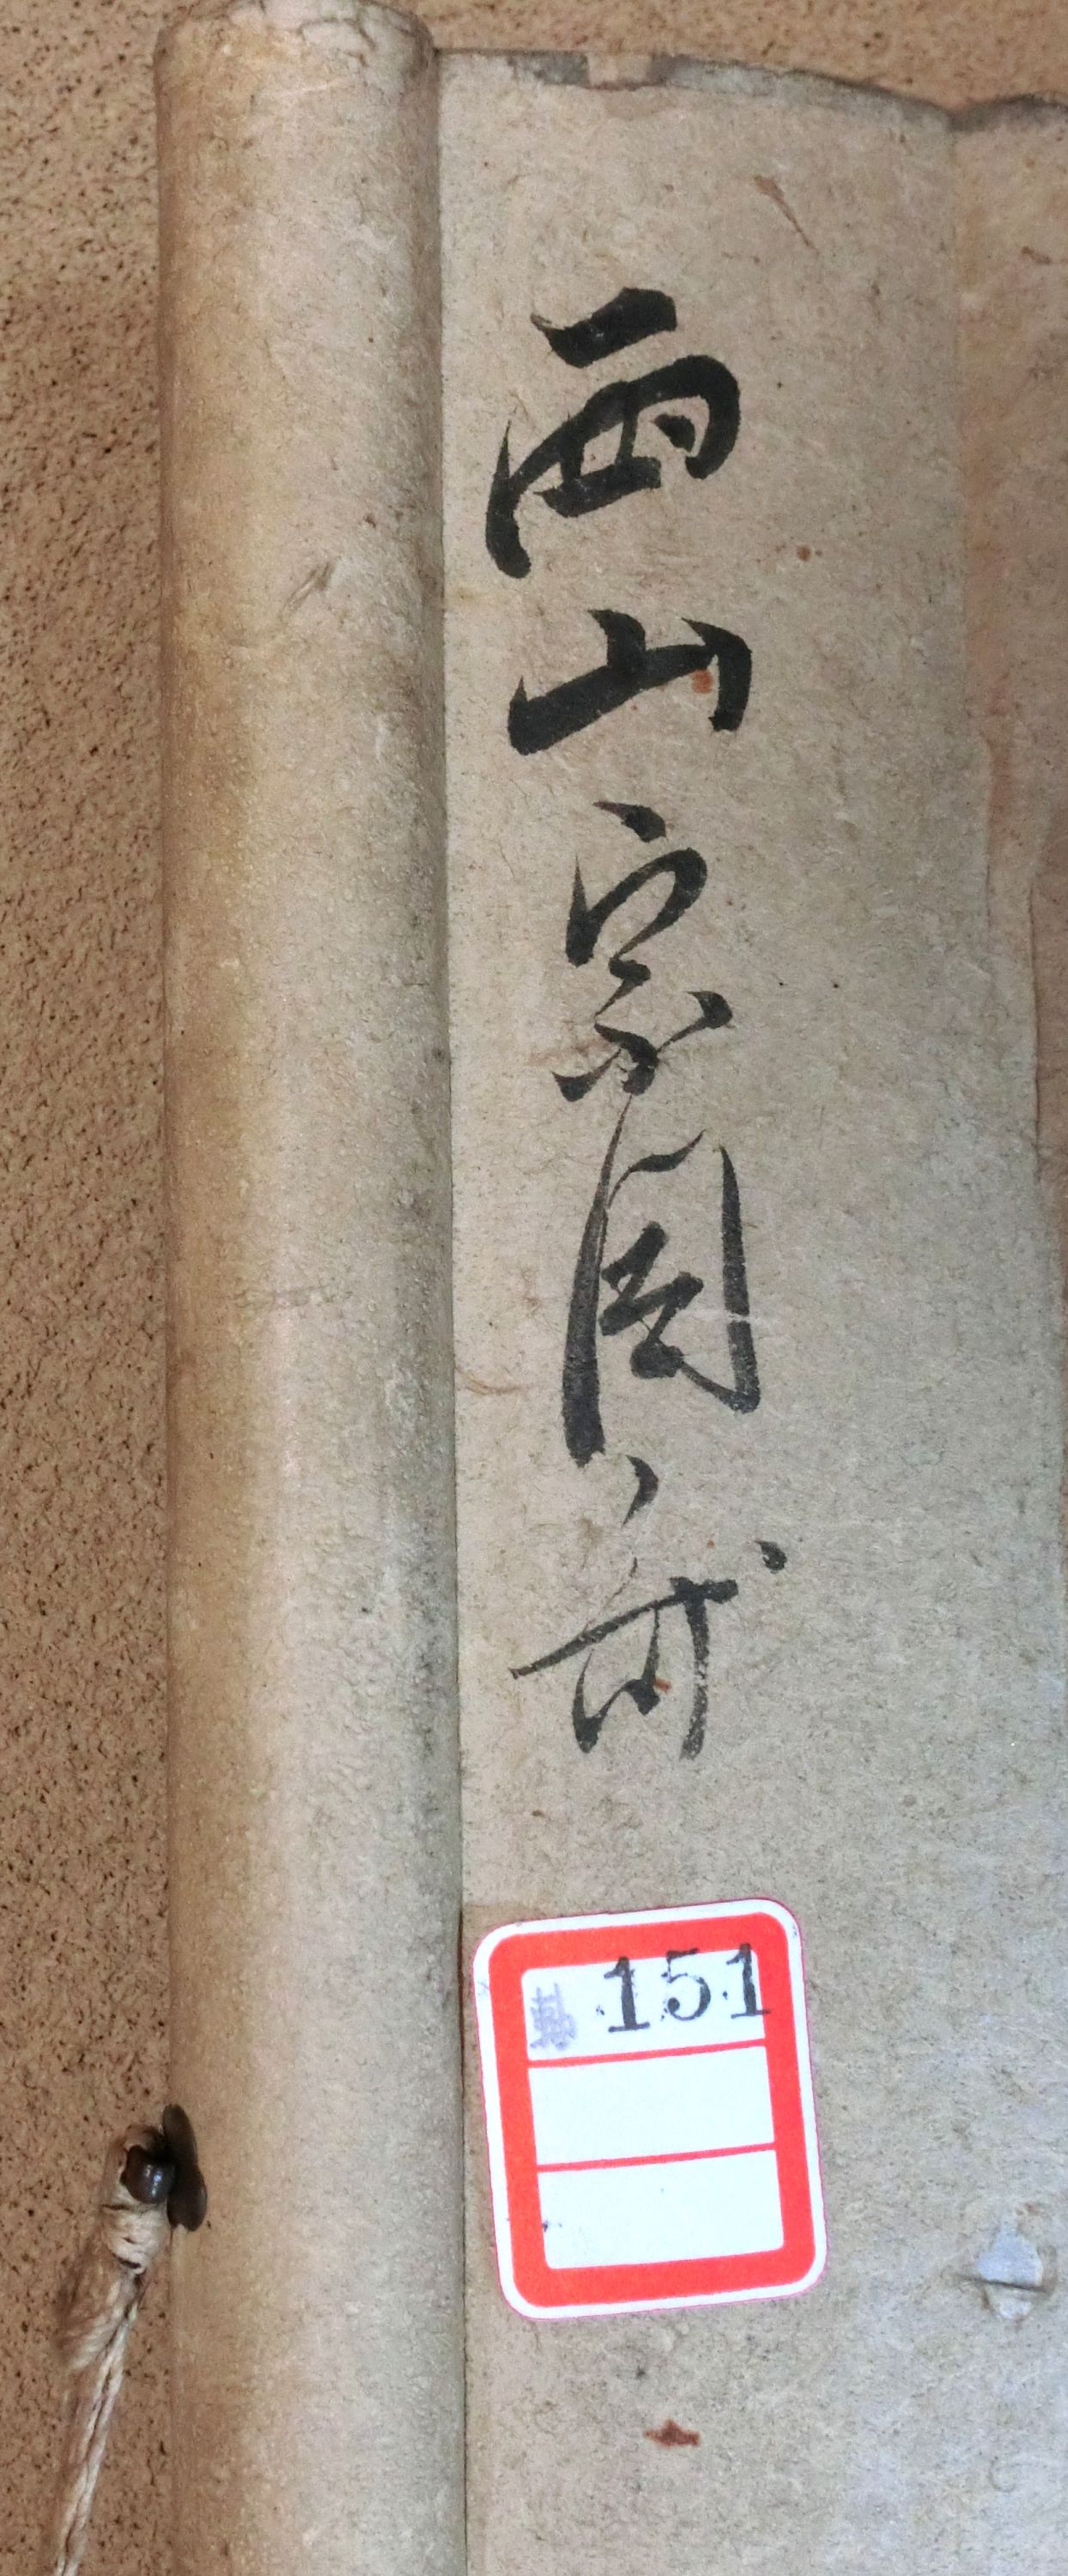 西山宗因
151